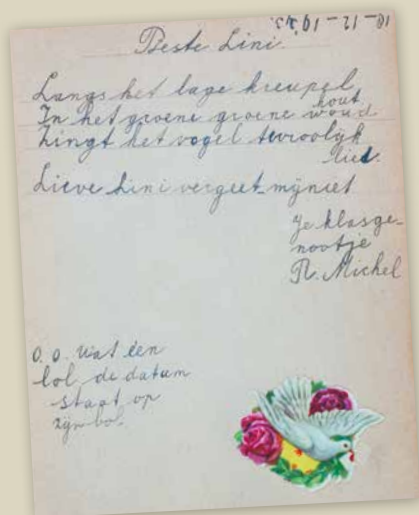 18-12-1943.
Beste Lini.
Langs het lage kreupel
hout
In het groene groene woud
Zingt het vogel
lied.
Lieve Lini vergeet mij niet
Je klasge-
nootje
R. Michel
O.O. Wat een
lol de datum
staat op
zijn bol.